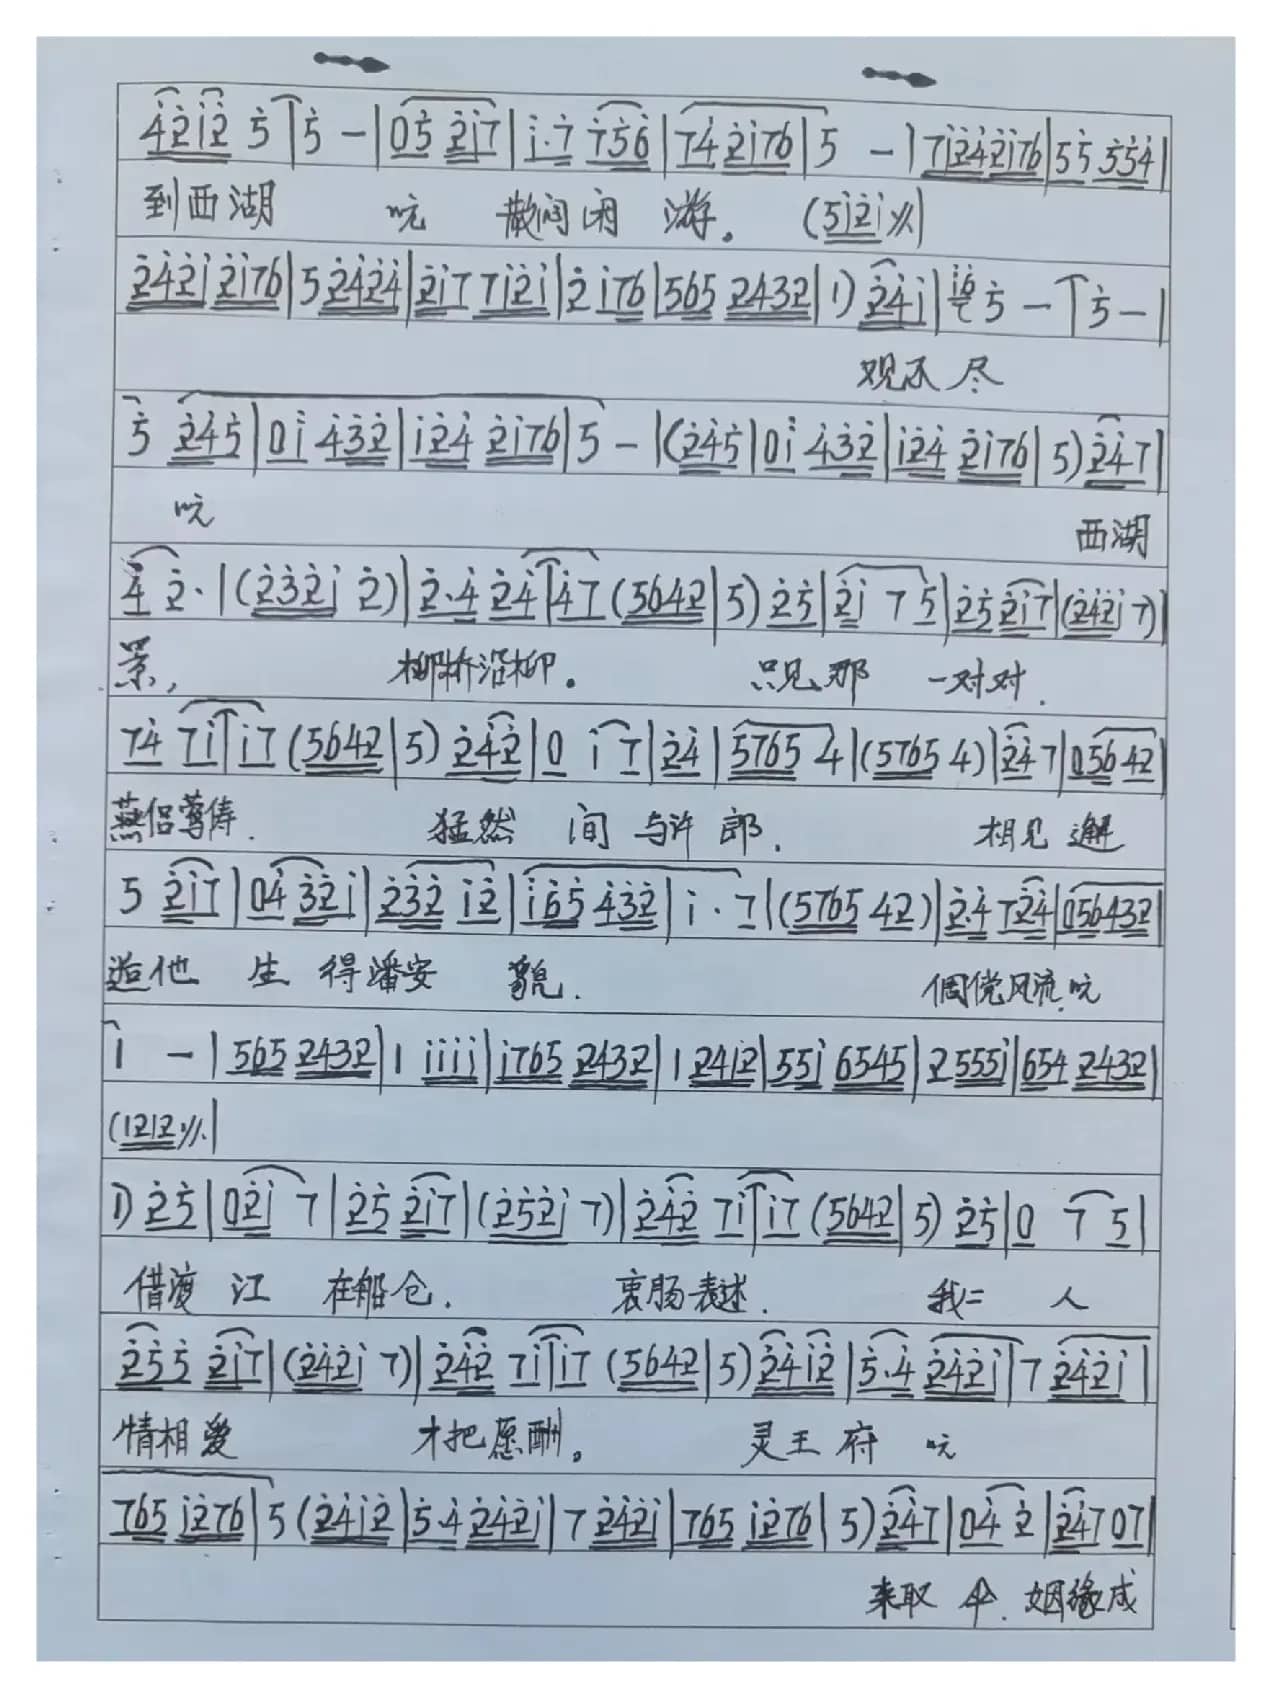 4̇2̇1̇2̇ 5̇ | 5̇ － | 05̇ 2̇1̇7 | 1̇·7 7̇5̇6̇ | 7̇4̇ 2̇1̇76 | 5 － | 71̇2̇4̇2̇1̇76 | 5̇5̇ 5̇5̇4̇ |
到西湖 吭 散闷闲 游。 (51̇2̇1̇ ⁒|
2̇4̇2̇1̇ 2̇1̇76 | 5 2̇4̇2̇4̇ | 2̇1̇7 71̇2̇1̇ | 2̇ 1̇76 | 565 2432 | 1) 2̇4̇1̇ | 1̇6̇ 5̇ － | 5̇ － |
观不尽
5̇ 2̇4̇5̇ | 01̇ 4̇3̇2̇ | 1̇2̇4̇ 2̇1̇76 | 5 － | (2̇4̇5̇ | 01̇ 4̇3̇2̇ | 1̇2̇4̇ 2̇1̇76 | 5) 2̇4̇7 |
吭 西湖
4̇ 2̇· | (2̇3̇2̇1̇ 2̇) | 2̇·4̇ 2̇4̇ | 4̇7 (5642 | 5) 2̇5̇ | 2̇1̇ 7 5̇ | 2̇5̇ 2̇1̇7 | (2̇4̇2̇1̇ 7) |
景, 柳桥沿柳。 只见那 一对对.
74̇ 71̇ | 1̇7 (5642 | 5) 2̇4̇2̇ | 0 1̇ 7 | 2̇4̇ | 5765 4 | (5765 4) | 2̇4̇ 7 | 056 42 |
燕侣莺俦. 猛然 间 与许 郎. 相见 邂
5 2̇1̇7 | 04̇ 3̇2̇1̇ | 2̇3̇2̇ 1̇2̇ | 1̇6̇5̇ 4̇3̇2̇ | 1̇·7 | (5765 42) | 2̇·4̇ 72̇4̇ | 056432 |
逅他 生 得潘安 貌. 倜傥风流.吭
1̇ － | 565 2432 | 1 1̇1̇1̇1̇ | 1̇765 2432 | 1 2412 | 551̇ 6545 | 2 5551̇ | 654 2432 |
(1212 ⁒|
1) 2̇5̇ | 02̇1̇ 7 | 2̇5̇ 2̇1̇7 | (2̇5̇2̇1̇ 7) | 2̇4̇2̇ 71̇ | 1̇7 (5642 | 5) 2̇5̇ | 0 7 5 |
借渡 江 在船仓. 衷肠表述. 我二 人
2̇5̇5̇ 2̇1̇7 | (2̇4̇2̇1̇ 7) | 2̇4̇2̇ 71̇ | 1̇7 (5642 | 5) 2̇4̇ 1̇2̇ | 5̇·4̇ 2̇4̇2̇1̇ | 7 2̇4̇2̇1̇ |
情相爱 才把愿酬。 灵王府 吭
765 1̇2̇76 | 5 (2̇4̇1̇2̇ | 5̇·4̇ 2̇4̇2̇1̇ | 7 2̇4̇2̇1̇ | 765 1̇2̇76 | 5) 2̇4̇7 | 04̇ 2̇ | 2̇4̇7 07 |
来取 伞. 姻缘成